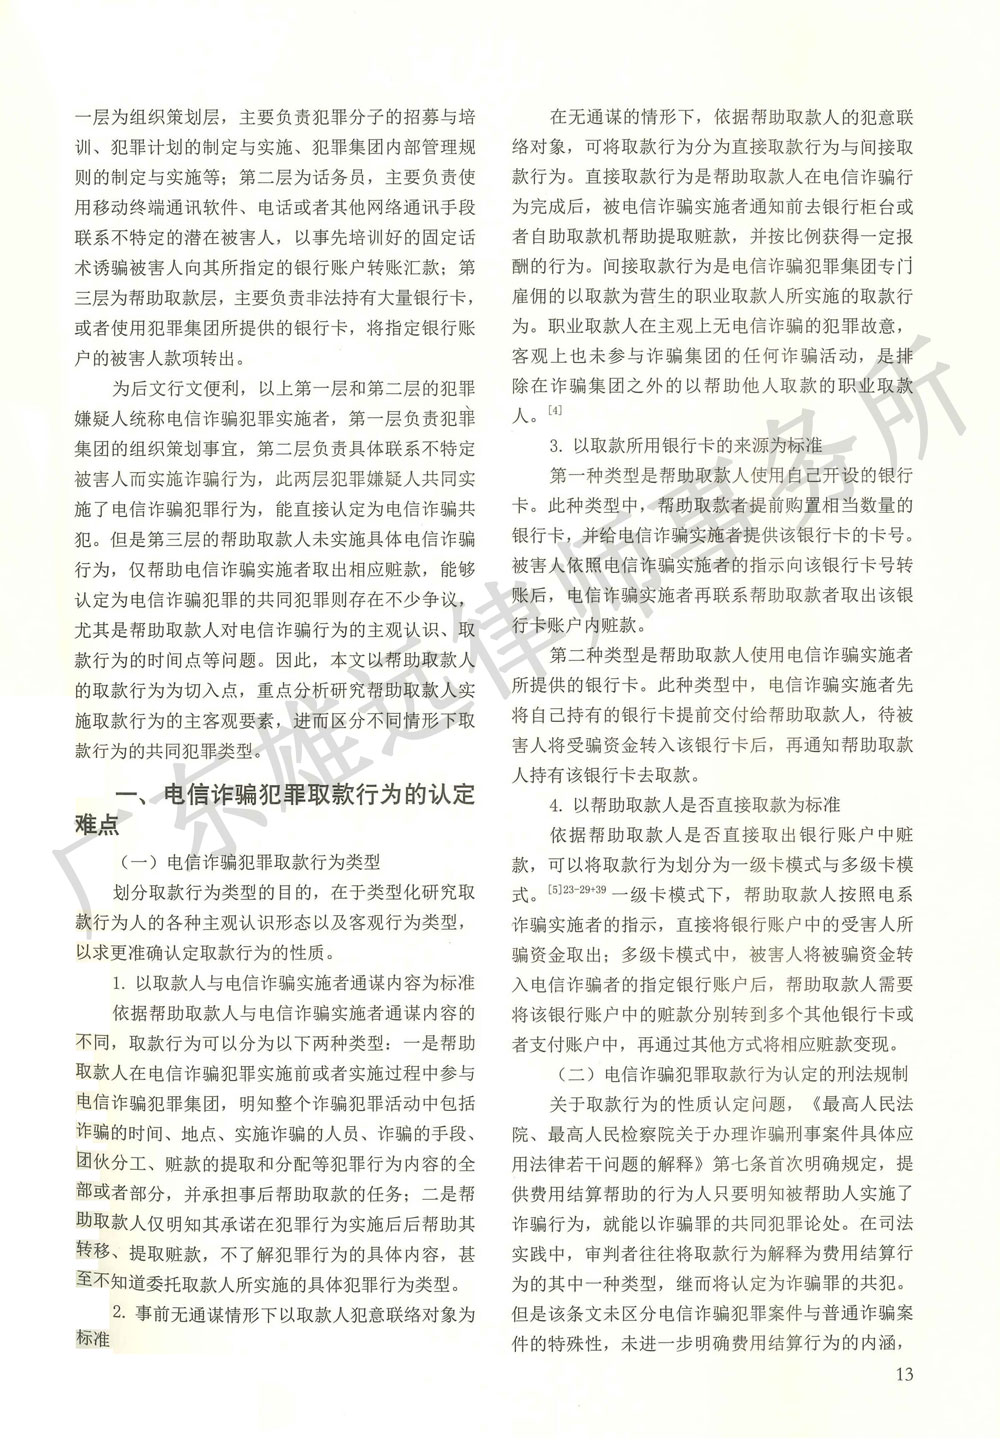 一层为组织策划层，主要负责犯罪分子的招募与培
训、犯罪计划的制定与实施、犯罪集团内部管理规
则的制定与实施等；第二层为话务员，主要负责使
用移动终端通讯软件、电话或者其他网络通讯手段
联系不特定的潜在被害人，以事先培训好的固定话
术诱骗被害人向其所指定的银行账户转账汇款；第
三层为帮助取款层，主要负责非法持有大量银行卡，
或者使用犯罪集团所提供的银行卡，将指定银行账
户的被害人款项转出。
为后文行文便利，以上第一层和第二层的犯罪
嫌疑人统称电信诈骗犯罪实施者，第一层负责犯罪
集团的组织策划事宜，第二层负责具体联系不特定
被害人而实施诈骗行为，此两层犯罪嫌疑人共同实
施了电信诈骗犯罪行为，能直接认定为电信诈骗共
犯。但是第三层的帮助取款人未实施具体电信诈骗
行为，仅帮助电信诈骗实施者取出相应赃款，能够
认定为电信诈骗犯罪的共同犯罪则存在不少争议，
尤其是帮助取款人对电信诈骗行为的主观认识、取
款行为的时间点等问题。因此，本文以帮助取款人
的取款行为为切入点，重点分析研究帮助取款人实
施取款行为的主客观要素，进而区分不同情形下取
款行为的共同犯罪类型。
一、电信诈骗犯罪取款行为的认定
难点
（一）电信诈骗犯罪取款行为类型
划分取款行为类型的目的，在于类型化研究取
款行为人的各种主观认识形态以及客观行为类型，
以求更准确认定取款行为的性质。
1. 以取款人与电信诈骗实施者通谋内容为标准
依据帮助取款人与电信诈骗实施者通谋内容的
不同，取款行为可以分为以下两种类型：一是帮助
取款人在电信诈骗犯罪实施前或者实施过程中参与
电信诈骗犯罪集团，明知整个诈骗犯罪活动中包括
诈骗的时间、地点、实施诈骗的人员、诈骗的手段、
团伙分工、赃款的提取和分配等犯罪行为内容的全
部或者部分，并承担事后帮助取款的任务；二是帮
助取款人仅明知其承诺在犯罪行为实施后后帮助其
转移、提取赃款，不了解犯罪行为的具体内容，甚
至不知道委托取款人所实施的具体犯罪行为类型。
2. 事前无通谋情形下以取款人犯意联络对象为
标准
在无通谋的情形下，依据帮助取款人的犯意联
络对象，可将取款行为分为直接取款行为与间接取
款行为。直接取款行为是帮助取款人在电信诈骗行
为完成后，被电信诈骗实施者通知前去银行柜台或
者自助取款机帮助提取赃款，并按比例获得一定报
酬的行为。间接取款行为是电信诈骗犯罪集团专门
雇佣的以取款为营生的职业取款人所实施的取款行
为。职业取款人在主观上无电信诈骗的犯罪故意，
客观上也未参与诈骗集团的任何诈骗活动，是排
除在诈骗集团之外的以帮助他人取款的职业取款
人。[4]
3. 以取款所用银行卡的来源为标准
第一种类型是帮助取款人使用自己开设的银行
卡。此种类型中，帮助取款者提前购置相当数量的
银行卡，并给电信诈骗实施者提供该银行卡的卡号。
被害人依照电信诈骗实施者的指示向该银行卡号转
账后，电信诈骗实施者再联系帮助取款者取出该银
行卡账户内赃款。
第二种类型是帮助取款人使用电信诈骗实施者
所提供的银行卡。此种类型中，电信诈骗实施者先
将自己持有的银行卡提前交付给帮助取款人，待被
害人将受骗资金转入该银行卡后，再通知帮助取款
人持有该银行卡去取款。
4. 以帮助取款人是否直接取款为标准
依据帮助取款人是否直接取出银行账户中赃
款，可以将取款行为划分为一级卡模式与多级卡模
式。[5]23-29+39 一级卡模式下，帮助取款人按照电系
诈骗实施者的指示，直接将银行账户中的受害人所
骗资金取出；多级卡模式中，被害人将被骗资金转
入电信诈骗者的指定银行账户后，帮助取款人需要
将该银行账户中的赃款分别转到多个其他银行卡或
者支付账户中，再通过其他方式将相应赃款变现。
（二）电信诈骗犯罪取款行为认定的刑法规制
关于取款行为的性质认定问题，《最高人民法
院、最高人民检察院关于办理诈骗刑事案件具体应
用法律若干问题的解释》第七条首次明确规定，提
供费用结算帮助的行为人只要明知被帮助人实施了
诈骗行为，就能以诈骗罪的共同犯罪论处。在司法
实践中，审判者往往将取款行为解释为费用结算行
为的其中一种类型，继而将认定为诈骗罪的共犯。
但是该条文未区分电信诈骗犯罪案件与普通诈骗案
件的特殊性，未进一步明确费用结算行为的内涵，
13
广东雄远律师事务所